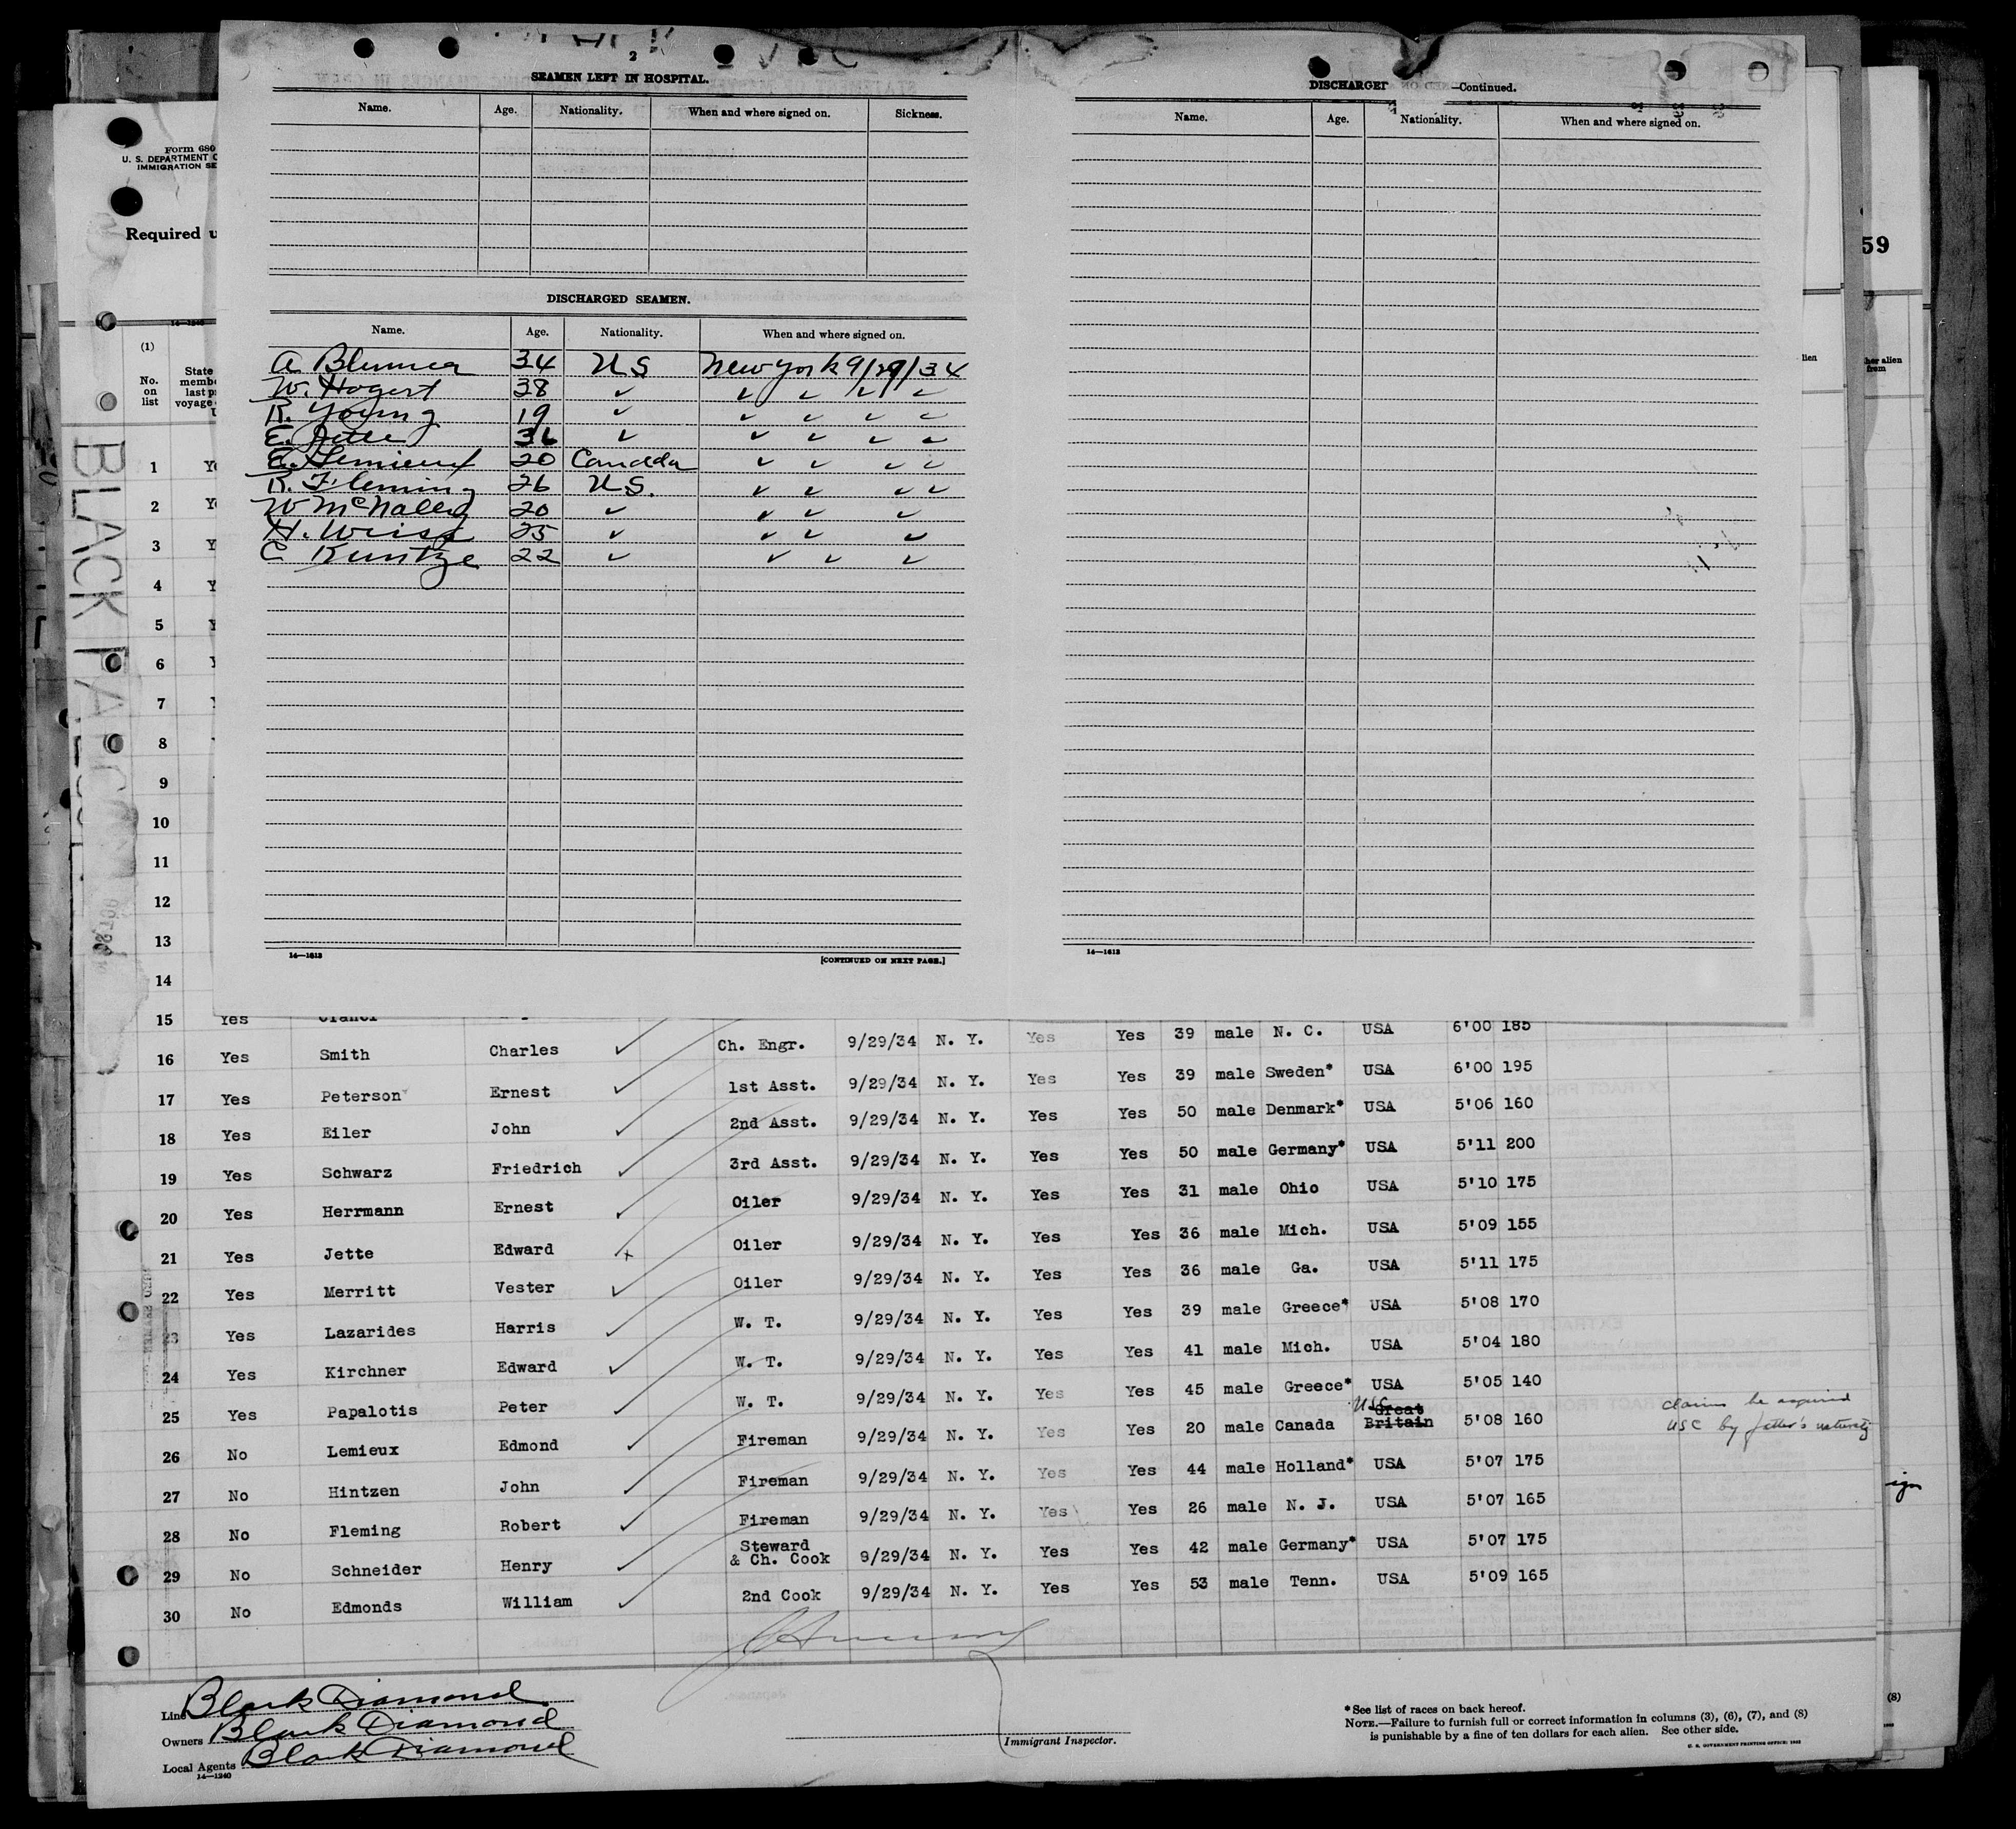 2
SEAMEN LEFT IN HOSPITAL.
Name. Age. Nationality. When and where signed on. Sickness.
DISCHARGED SEAMEN.
Name. Age. Nationality. When and where signed on.
A Blumer 34 U S New York 9/29/34
W. Hogert 38 ✓ ✓ ✓ ✓ ✓
R. Young 19 ✓ ✓ ✓ ✓ ✓
E. Jette 36 ✓ ✓ ✓ ✓ ✓
E. Lemieux 20 Canadda ✓ ✓ ✓ ✓
R. Fleming 26 U S. ✓ ✓ ✓ ✓
W McNally 20 ✓ ✓ ✓ ✓
H. Weiss 25 ✓ ✓ ✓ ✓
C Kuntze 22 ✓ ✓ ✓ ✓
14—1613
[CONTINUED ON NEXT PAGE.]
DISCHARGED —Continued.
Name. Age. Nationality. When and where signed on.
14—1613
Form 680
U. S. DEPARTMENT
IMMIGRATION SE
Required u
59
(1)
No. on list
State
memb
last p
voyage
BLACK
1 Y
2 Y
3 Y
4 Y
5 Y
6
7
8
9
10
11
12
13
14
15 Yes
16 Yes Smith Charles ✓ Ch. Engr. 9/29/34 N. Y. Yes Yes 39 male N. C. USA 6'00 185
17 Yes Peterson Ernest ✓ 1st Asst. 9/29/34 N. Y. Yes Yes 39 male Sweden* USA 6'00 195
18 Yes Eiler John ✓ 2nd Asst. 9/29/34 N. Y. Yes Yes 50 male Denmark* USA 5'06 160
19 Yes Schwarz Friedrich ✓ 3rd Asst. 9/29/34 N. Y. Yes Yes 50 male Germany* USA 5'11 200
20 Yes Herrmann Ernest ✓ Oiler 9/29/34 N. Y. Yes Yes 31 male Ohio USA 5'10 175
21 Yes Jette Edward x Oiler 9/29/34 N. Y. Yes Yes 36 male Mich. USA 5'09 155
22 Yes Merritt Vester ✓ Oiler 9/29/34 N. Y. Yes Yes 36 male Ga. USA 5'11 175
23 Yes Lazarides Harris ✓ W. T. 9/29/34 N. Y. Yes Yes 39 male Greece* USA 5'08 170
24 Yes Kirchner Edward ✓ W. T. 9/29/34 N. Y. Yes Yes 41 male Mich. USA 5'04 180
25 Yes Papalotis Peter ✓ W. T. 9/29/34 N. Y. Yes Yes 45 male Greece* USA 5'05 140
26 No Lemieux Edmond ✓ Fireman 9/29/34 N. Y. Yes Yes 20 male Canada USC Great Britain 5'08 160 claims he acquired USC by father's
27 No Hintzen John ✓ Fireman 9/29/34 N. Y. Yes Yes 44 male Holland* USA 5'07 175
28 No Fleming Robert ✓ Fireman 9/29/34 N. Y. Yes Yes 26 male N. J. USA 5'07 165
29 No Schneider Henry ✓ Steward & Ch. Cook 9/29/34 N. Y. Yes Yes 42 male Germany* USA 5'07 175
30 No Edmonds William ✓ 2nd Cook 9/29/34 N. Y. Yes Yes 53 male Tenn. USA 5'09 165
Line Black Diamond
Owners Black Diamond
Local Agents Black Diamond
14—1240
Immigrant Inspector.
*See list of races on back hereof.
NOTE.—Failure to furnish full or correct information in columns (3), (6), (7), and (8)
is punishable by a fine of ten dollars for each alien. See other side.
(8)